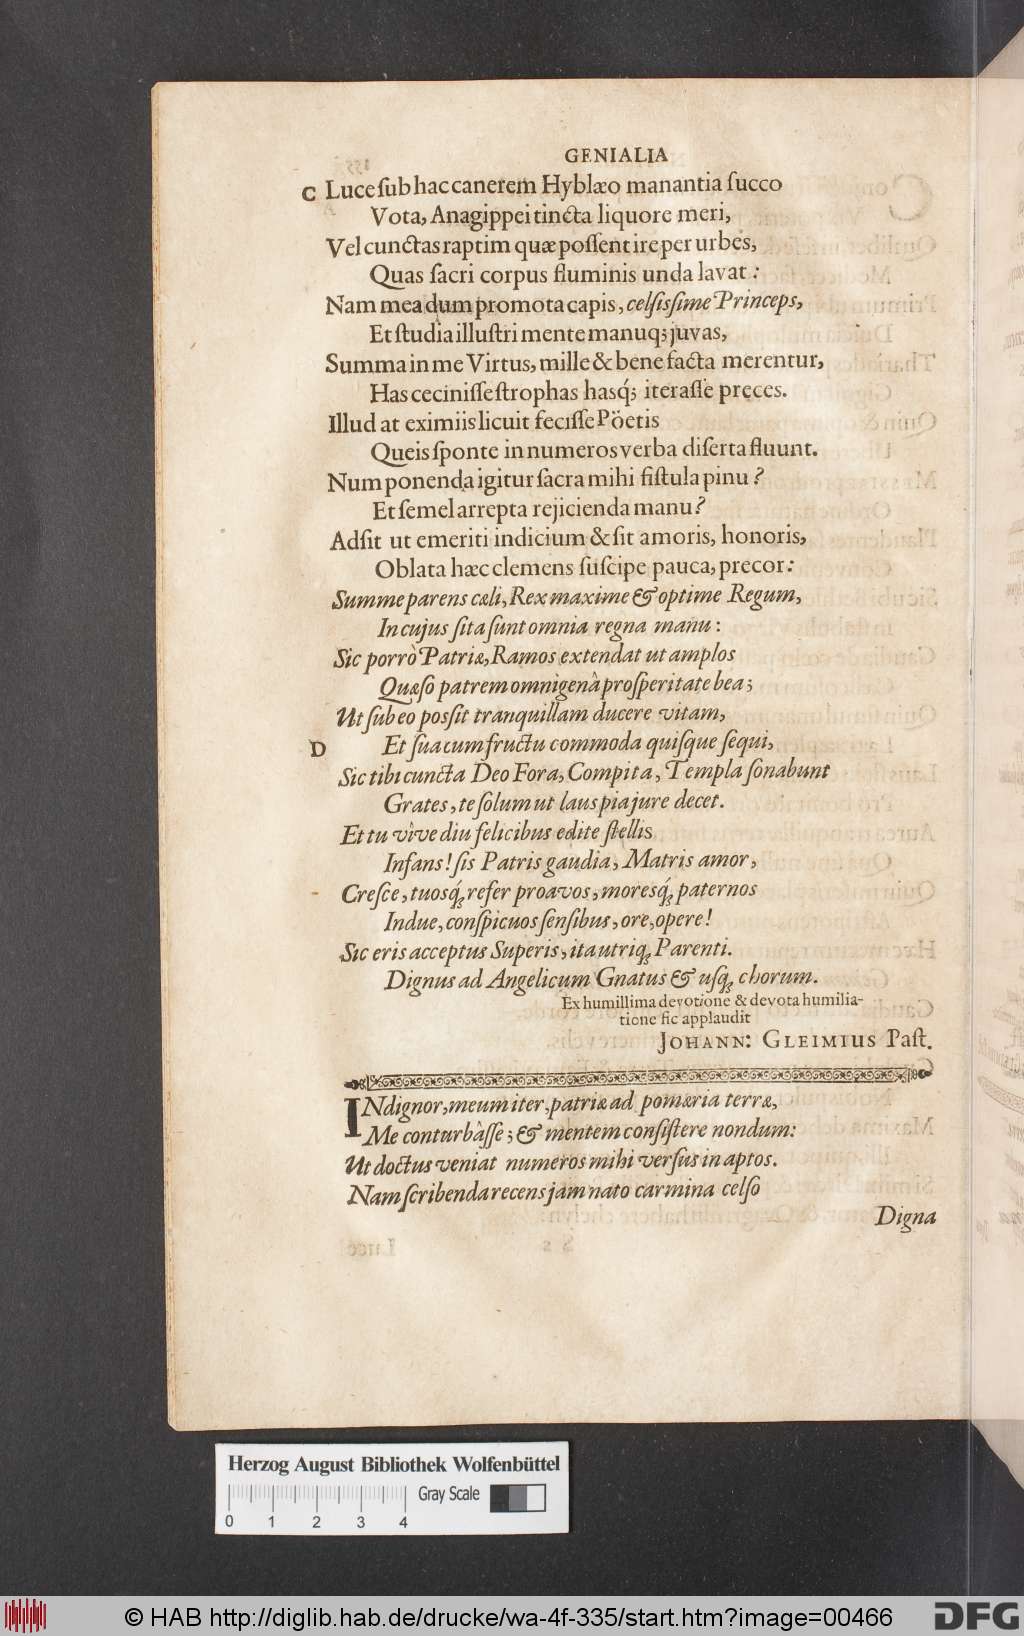 GENIALIA
C Luce ſub hac canerem Hyblæo manantia ſucco
Vota, Anagippei tincta liquore meri,
Vel cunctas raptim quæ poſſent ire per urbes,
Quas ſacri corpus fluminis unda lavat:
Nam mea dum promota capis, celſisſime Princeps,
Et ſtudia illuſtri mente manuq; juvas,
Summa in me Virtus, mille & bene facta merentur,
Has ceciniſſe ſtrophas hasq́; iteraſſe preces.
Illud at eximiis licuit feciſſe Pöetis
Queis ſponte in numeros verba diſerta fluunt.
Num ponenda igitur ſacra mihi fiſtula pinu?
Et ſemel arrepta rejicienda manu?
Adſit ut emeriti indicium & ſit amoris, honoris,
Oblata hæc clemens ſuſcipe pauca, precor:
Summe parens cæli, Rex maxime & optime Regum,
In cujus ſita ſunt omnia regna manu:
Sic porrò Patriæ, Ramos extendat ut amplos
Quæſo patrem omnigenâ proſperitate bea;
Ut ſub eo posſit tranquillam ducere vitam,
D Et ſua cum fructu commoda quiſque ſequi,
Sic tibi cuncta Deo Fora, Compita, Templa ſonabunt
Grates, te ſolum ut laus pia jure decet.
Et tu vîve diu felicibus edite ſtellis
Infans! ſis Patris gaudia, Matris amor,
Creſce, tuosq́; refer proavos, moresq́; paternos
Indue, conſpicuos ſenſibus, ore, opere!
Sic eris acceptus Superis, ita utriq; Parenti.
Dignus ad Angelicum Gnatus & uſq; chorum.
Ex humillima devotione & devota humilia-
tione ſic applaudit
JOHANN: GLEIMIUS Paſt.
INdignor, meum iter, patriæ ad pomæria terræ,
Me conturbâſſe; & mentem conſiſtere nondum:
Ut doctus veniat numeros mihi verſus in aptos.
Nam ſcribenda recens jam nato carmina celſo
Digna
Herzog August Bibliothek Wolfenbüttel
Gray Scale
0 1 2 3 4
© HAB http://diglib.hab.de/drucke/wa-4f-335/start.htm?image=00466
DFG